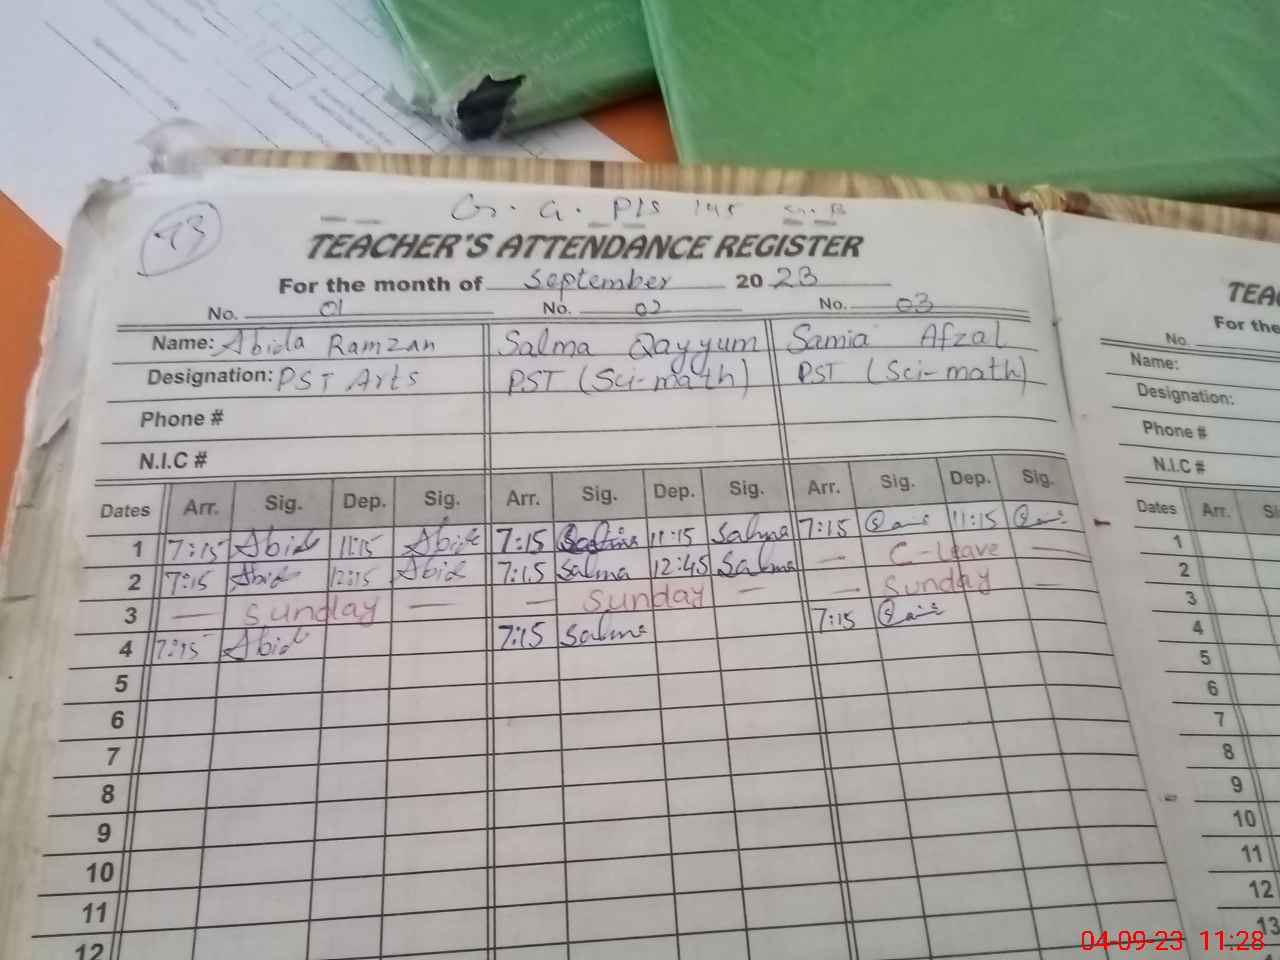 93
G. G. P/S 145
TEACHER'S ATTENDANCE REGISTER
For the month of September 2023
No. 01 No. 02 No. 03
Name: Abida Ramzan Salma Qayyum Samia Afzal
Designation: PST Arts PST (Sci-math) PST (Sci-math)
Phone #
N.I.C #
Dates Arr. Sig. Dep. Sig. Arr. Sig. Dep. Sig. Arr. Sig. Dep. Sig.
1 7:15 Abid 11:15 Abid 7:15 Salma 11:15 Salma 7:15 11:15
2 7:15 Abid 12:15 Abid 7:15 Salma 12:45 Salma — C-leave —
3 — Sunday — — Sunday — — Sunday —
4 7:15 Abid 7:15 Salma 7:15
5
6
7
8
9
10
11
12
TEAC
For the
No.
Name:
Designation:
Phone #
N.I.C #
Dates Arr. Si
1
2
3
4
5
6
7
8
9
10
11
12
13
04-09-23 11:28